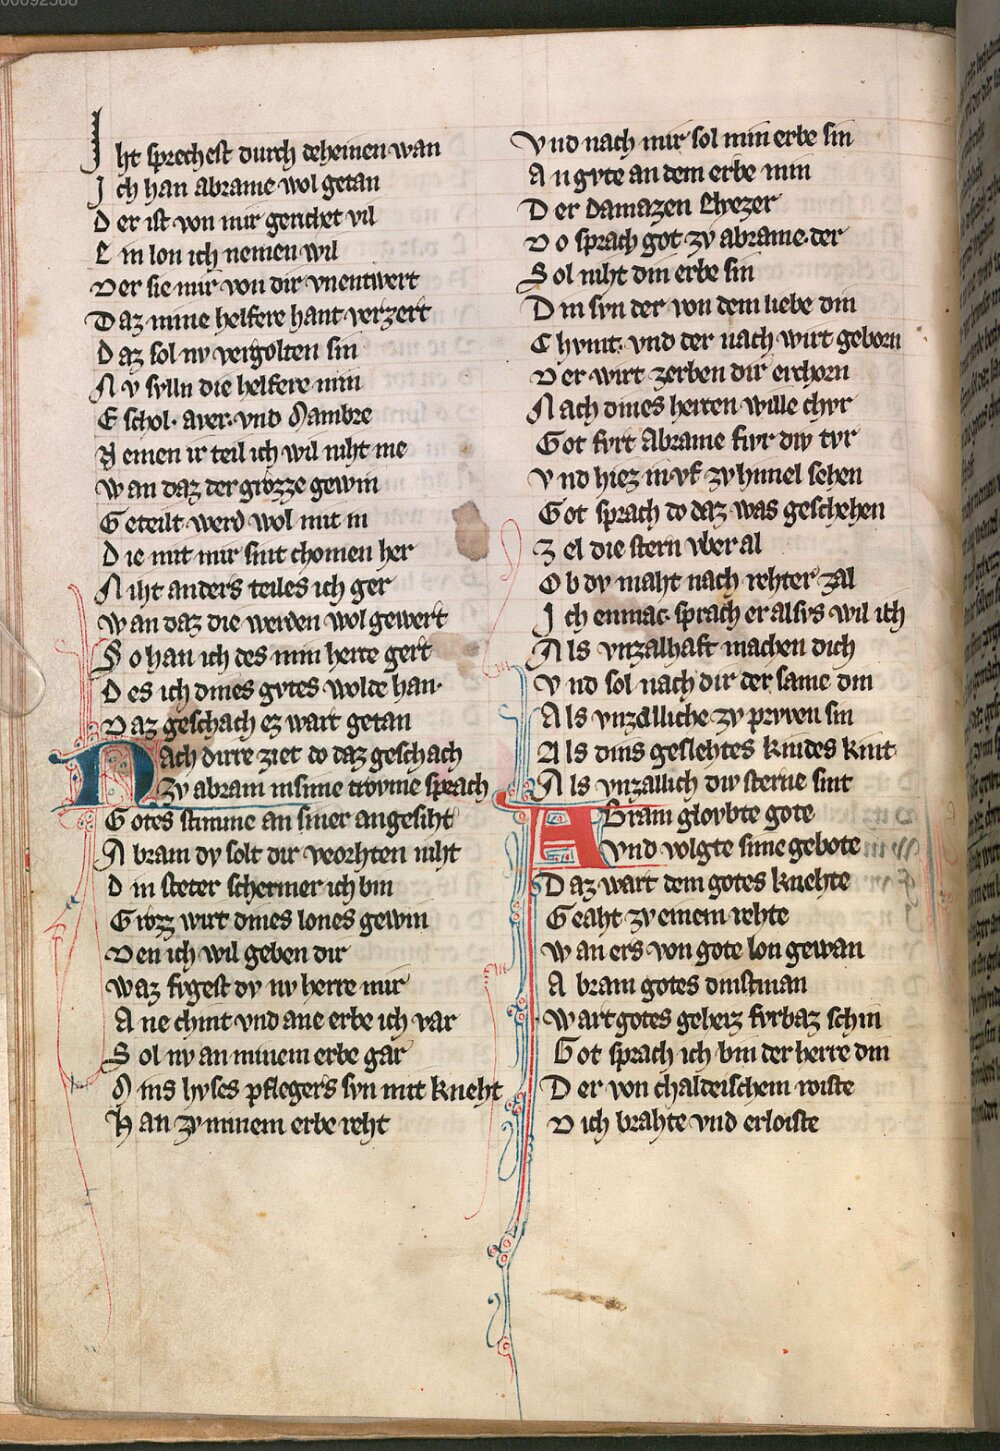 Iht sprechest durch deheinen wan
Ich han abrame wol getan
Der ist von mir gerichet vil
Ein lon ich nemen wil
Der sie mir von dir vnentwert
Daz mine helfere hant verzert
Daz sol nv vergolten sin
Nv sylln die helfere min
Eschol. aner. vnd Mambre
Nemen ir teil ich wil niht me
wan daz der grozze gewin
Geteilt werd wol mit in
Die mit mir sint chomen her
Niht anders teiles ich ger
wan daz die werden wol gewert
So han ich des min herre gert
Des ich dines gvtes wolde han.
Daz geschach ez wart getan
Nach dirre ziet do daz geschach
Zv abram insime trovme sprach
Gotes stimme an siner angesiht
Abram dv solt dir veorhten niht
Din steter schermer ich bin
Grozz wirt dines lones gewin
Den ich wil geben dir
waz fvgest dv nv herre mir
Ane chint vnd ane erbe ich var
Sol nv an minem erbe gar
Mins hvses pflegers svn mit kneht
Han zv minem erbe reht
Vnd nach mir sol min erbe sin
An gvte an dem erbe min
Der damazen Elyezer
Do sprach got zv abrame. der
Sol niht din erbe sin
Din svn der von dem liebe din
Chvmt. vnd der nach wirt geborn
Der wirt zerben dir erchorn
Nach dines herren wille chvr
Got fvrt Abrame fvr div tvr
Vnd hiez in vf zv himel sehen
Got sprach do daz was geschehen
Zel die stern vber al
Ob dv maht nach rehter zal
Ich enmac. sprach er alsvs wil ich
Als vnzalhaft machen dich
Vnd sol nach dir der same din
Als vnzalliche zv prvven sin
Als dins geslehtes kindes kint
Als vnzallich div sterne sint
Abram glovbte gote
vnd volgte sime gebote
Daz wart dem gotes knehte
Geaht zv einem rehte
wan ers von gote lon gewan
Abram gotes dinstman
wart gotes geheiz fvrbaz schin
Got sprach ich bin der herre din
Der von chaldeischem roiste
Dich brahte vnd erloiste